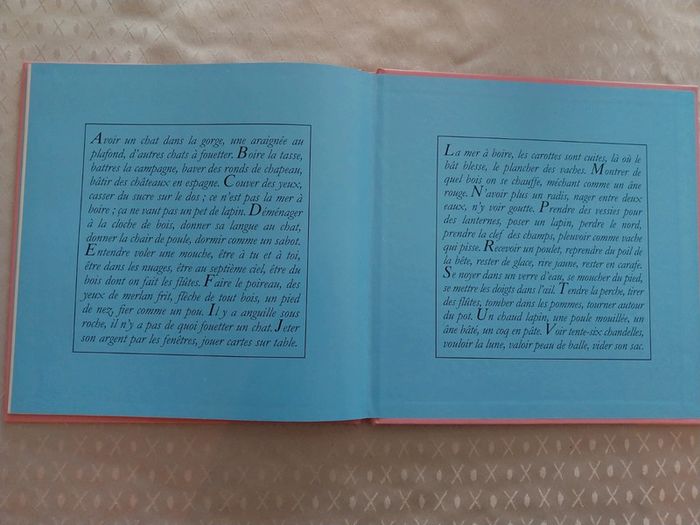 Avoir un chat dans la gorge, une araignée au
plafond, d'autres chats à fouetter. Boire la tasse,
battres la campagne, baver des ronds de chapeau,
bâtir des châteaux en espagne. Couver des yeux,
casser du sucre sur le dos ; ce n'est pas la mer à
boire ; ça ne vaut pas un pet de lapin. Déménager
à la cloche de bois, donner sa langue au chat,
donner la chair de poule, dormir comme un sabot.
Entendre voler une mouche, être à tu et à toi,
être dans les nuages, être au septième ciel, être du
bois dont on fait les flûtes. Faire le poireau, des
yeux de merlan frit, flèche de tout bois, un pied
de nez, fier comme un pou. Il y a anguille sous
roche, il n'y a pas de quoi fouetter un chat. Jeter
son argent par les fenêtres, jouer cartes sur table.
La mer à boire, les carottes sont cuites, là où le
bât blesse, le plancher des vaches. Montrer de
quel bois on se chauffe, méchant comme un âne
rouge. N'avoir plus un radis, nager entre deux
eaux, n'y voir goutte. Prendre des vessies pour
des lanternes, poser un lapin, perdre le nord,
prendre la clef des champs, pleuvoir comme vache
qui pisse. Recevoir un poulet, reprendre du poil de
la bête, rester de glace, rire jaune, rester en carafe.
Se noyer dans un verre d'eau, se moucher du pied,
se mettre les doigts dans l'œil. Tendre la perche, tirer
des flûtes, tomber dans les pommes, tourner autour
du pot. Un chaud lapin, une poule mouillée, un
âne bâté, un coq en pâte. Voir tente-six chandelles,
vouloir la lune, valoir peau de balle, vider son sac.